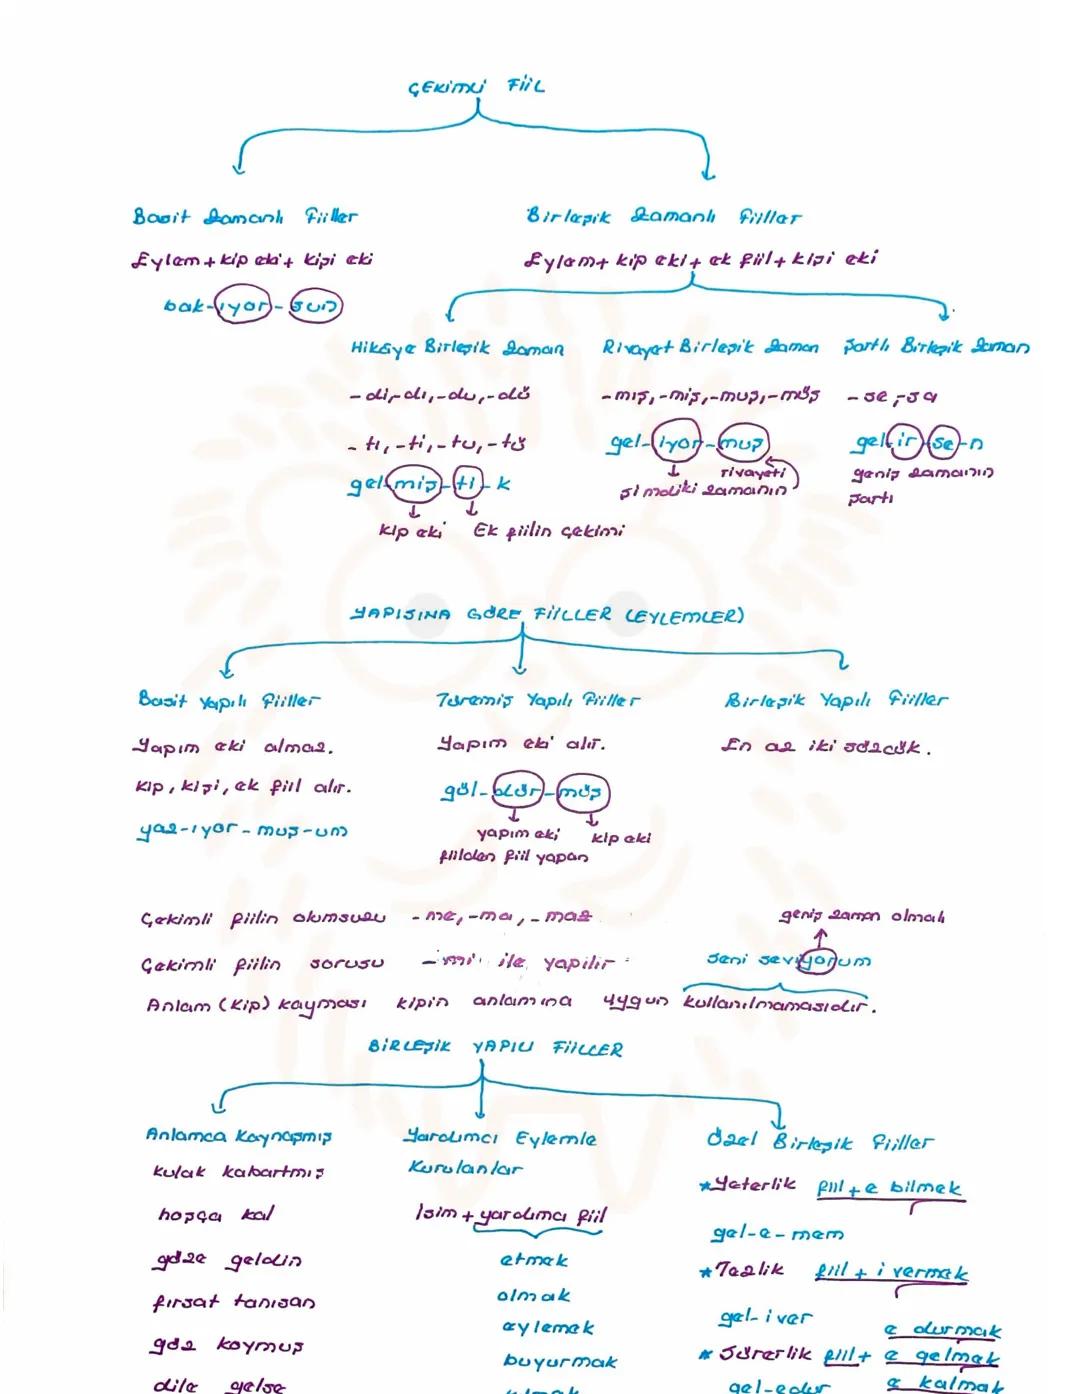 ÇEKİMLİ FİİL
Basit Zamanlı Fiiller
Eylem + kip eki + kişi eki
bak-ıyor-sun
Birleşik Zamanlı Fiiller
Eylem + kip eki + ek fiil + kişi eki
Hikâye Birleşik Zaman
-di,-dı,-du,-dü
-tı,-ti,-tu,-tü
gel-miş-ti-k
kip eki Ek fiilin çekimi
Rivayet Birleşik Zaman
-mış,-miş,-muş,-müş
gel-iyor-muş
rivayeti
şimdiki zamanın
Şartlı Birleşik Zaman
-se,-sa
gel-ir-se-n
geniş zamanın
şartı
YAPISINA GÖRE FİİLLER (EYLEMLER)
Basit Yapılı Fiiller
Yapım eki almaz.
Kip, kişi, ek fiil alır.
yaz-ıyor-muş-um
Türemiş Yapılı Fiiller
Yapım eki alır.
gül-dür-müş
yapım eki kip eki
fiilden fiil yapan
Birleşik Yapılı Fiiller
En az iki sözcük.
Çekimli fiilin olumsuzu -me,-ma,-maz
geniş zaman olmalı
Çekimli fiilin sorusu -mi ile yapılır
seni seviyorum
Anlam (Kip) kayması kipin anlamına uygun kullanılmamasıdır.
BİRLEŞİK YAPILI FİİLLER
Anlamca Kaynaşmış
kulak kabartmış
hoşça kal
göze geldin
fırsat tanısan
göz koymuş
dile gelse
Yardımcı Eylemle
Kurulanlar
İsim + yardımcı fiil
etmek
olmak
eylemek
buyurmak
kılmak
Özel Birleşik Fiiller
*Yeterlik fiil + e bilmek
gel-e-mem
*Tezlik fiil + i vermek
gel-iver
e durmak
* Sürerlik fiil + e gelmek
e kalmak
gel-edur